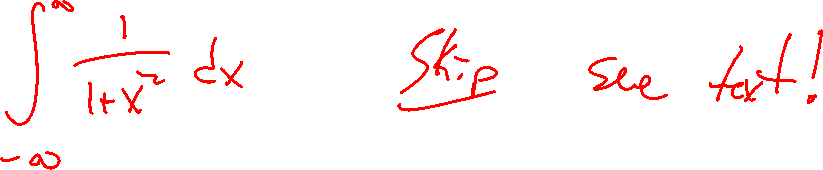 ∫_{-∞}^{∞} \frac{1}{1+x^2} dx Skip see text!